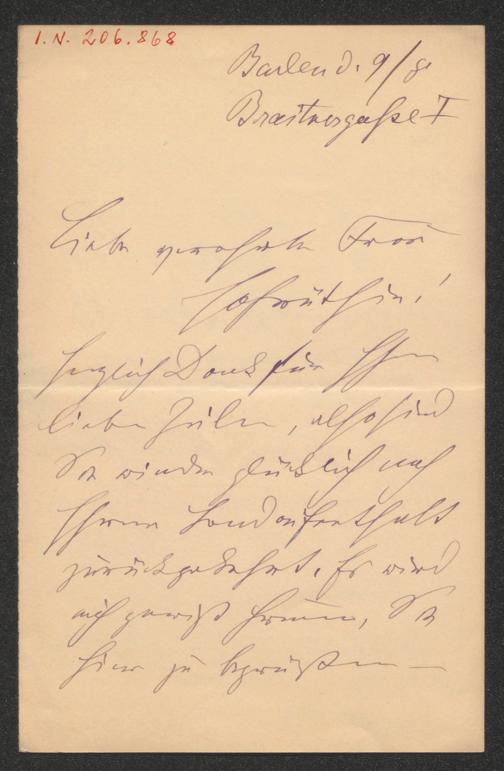 I.N. 206.868
Baden d. 9/8
Braitnergasse I
Liebe verehrte Frau
Hofräthin!
Herzlich Dank für Ihre
lieben Zeilen, also sind
Sie wieder glücklich nach
Ihrem Landaufenthalt
zurückgekehrt. Es wird
mich gewiß freuen, Sie
hier zu begrüßen —